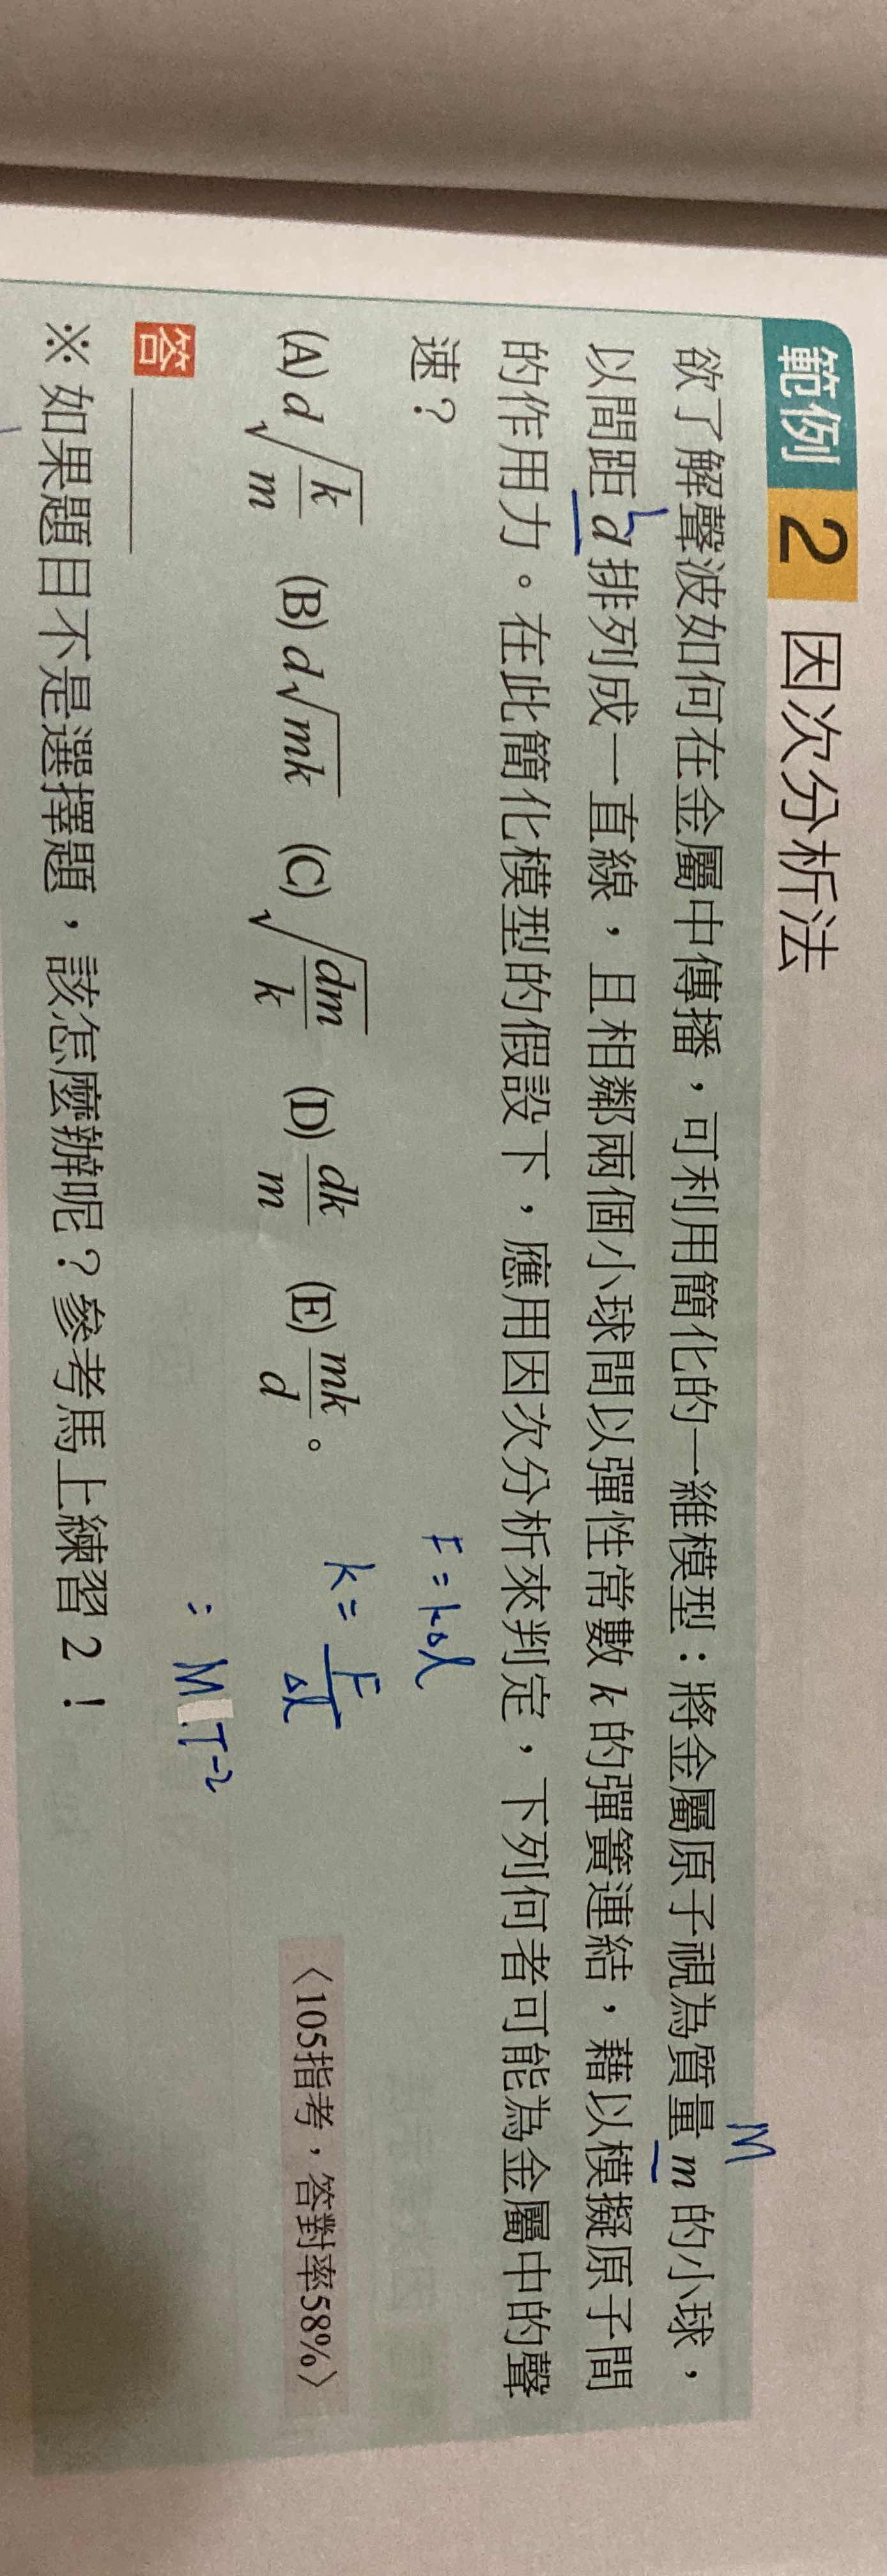 範例 2 因次分析法
M
欲了解聲波如何在金屬中傳播，可利用簡化的一維模型：將金屬原子視為質量 m 的小球，
L
以間距 d 排列成一直線，且相鄰兩個小球間以彈性常數 k 的彈簧連結，藉以模擬原子間
的作用力。在此簡化模型的假設下，應用因次分析來判定，下列何者可能為金屬中的聲
速？
F = kΔl
(A) d√(k/m) (B) d√(mk) (C) √(dm/k) (D) dk/m (E) mk/d。
k = F/Δl
〈105指考，答對率58%〉
答
: M．T-2
※ 如果題目不是選擇題，該怎麼辦呢？參考馬上練習 2！